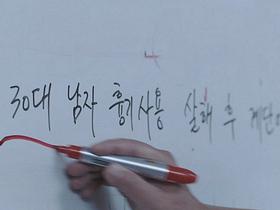 30대 남자 흉기사용 살해 후 계단